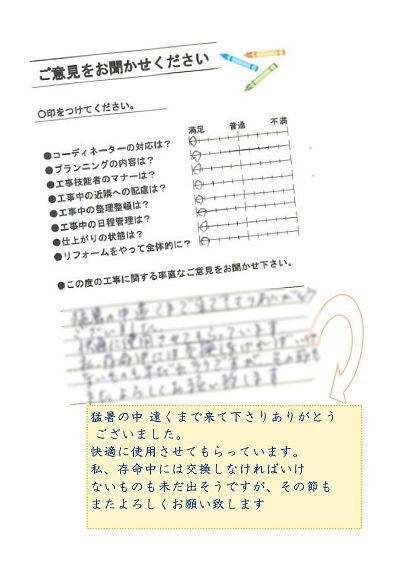 ご意見をお聞かせください
〇印をつけてください。
満足 普通 不満
●コーディネーターの対応は？
●プランニングの内容は？
●工事技能者のマナーは？
●工事中の近隣への配慮は？
●工事中の整理整頓は？
●工事中の日程管理は？
●仕上がりの状態は？
●リフォームをやって全体的に？
●この度の工事に関する率直なご意見をお聞かせ下さい。
猛暑の中 遠くまで来て下さりありがとう
ございました。
快適に使用させてもらっています。
私、存命中には交換しなければいけ
ないものも未だ出そうですが、その節も
またよろしくお願い致します